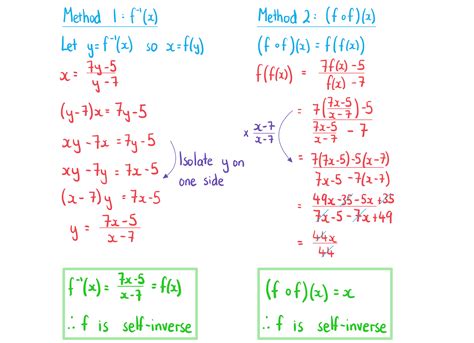 Method 1: f⁻¹(x)
Let y=f⁻¹(x) so x=f(y)
x = (7y-5)/(y-7)
(y-7)x = 7y-5
xy-7x = 7y-5
xy-7y = 7x-5
(x-7)y = 7x-5
y = (7x-5)/(x-7)
Isolate y on
one side
f⁻¹(x) = (7x-5)/(x-7) = f(x)
∴ f is self-inverse
Method 2: (f∘f)(x)
(f∘f)(x) = f(f(x))
f(f(x)) = (7f(x)-5)/(f(x)-7)
= (7((7x-5)/(x-7))-5)/((7x-5)/(x-7) - 7)
× (x-7)/(x-7)
= (7(7x-5)-5(x-7))/(7x-5-7(x-7))
= (49x-35-5x+35)/(7x-5-7x+49)
= 44x/44
(f∘f)(x) = x
∴ f is self-inverse